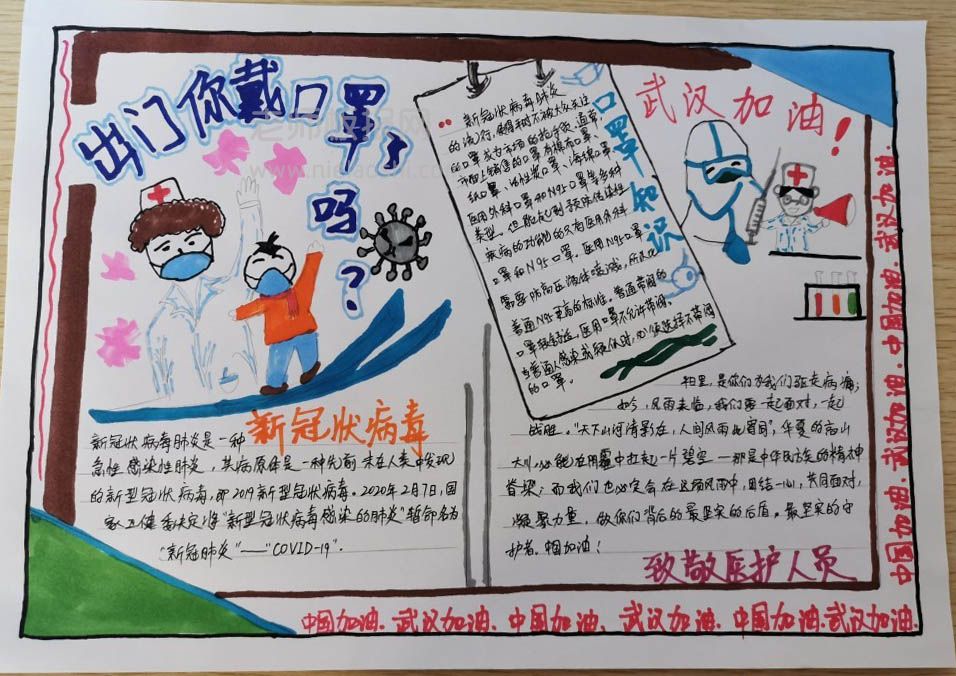 出门你戴口罩了
吗?
新冠状病毒
新冠状病毒肺炎是一种
急性感染性肺炎,其病原体是一种先前未在人类中发现
的新型冠状病毒,即2019新型冠状病毒。2020年2月7日,国
家卫健委决定将"新型冠状病毒感染的肺炎"暂命名为
"新冠肺炎"——"COVID-19".
口罩知识
新冠状病毒肺炎
的流行,使得平时不被大众关注
的口罩成为市场的抢手货,通常
市面上销售的口罩有棉布口罩、
纸口罩、活性炭口罩、海绵口罩、
医用外科口罩和N95口罩等多种
类型。但能起到预防传染性
疾病的功能的只有医用外科
口罩和N95口罩。医用N95口罩
需要防高压液体喷溅,所以比
普通N95更高的标准。普通带阀的
口罩
医用口罩不允许带阀,
当普通人感染或疑似时,必须选择不带阀
的口罩。
武汉加油!
往里,是你们为我们驱走病毒;
如今,风雨来临,我们要一起面对,一起
战胜。"天下山河情影在,人间风雨此眉间",华夏的高山
大川,必能在阴霾中扛起一片碧空—那是中华民族的精神
脊梁;而我们也必定会在这场风雨中,团结一心,共同面对,
凝聚力量,做你们背后的最坚实的后盾。最坚实的守
护者。中国加油!
致敬医护人员
中国加油.武汉加油.中国加油.武汉加油.中国加油.武汉加油.
中国加油.武汉加油.中国加油.武汉加油.